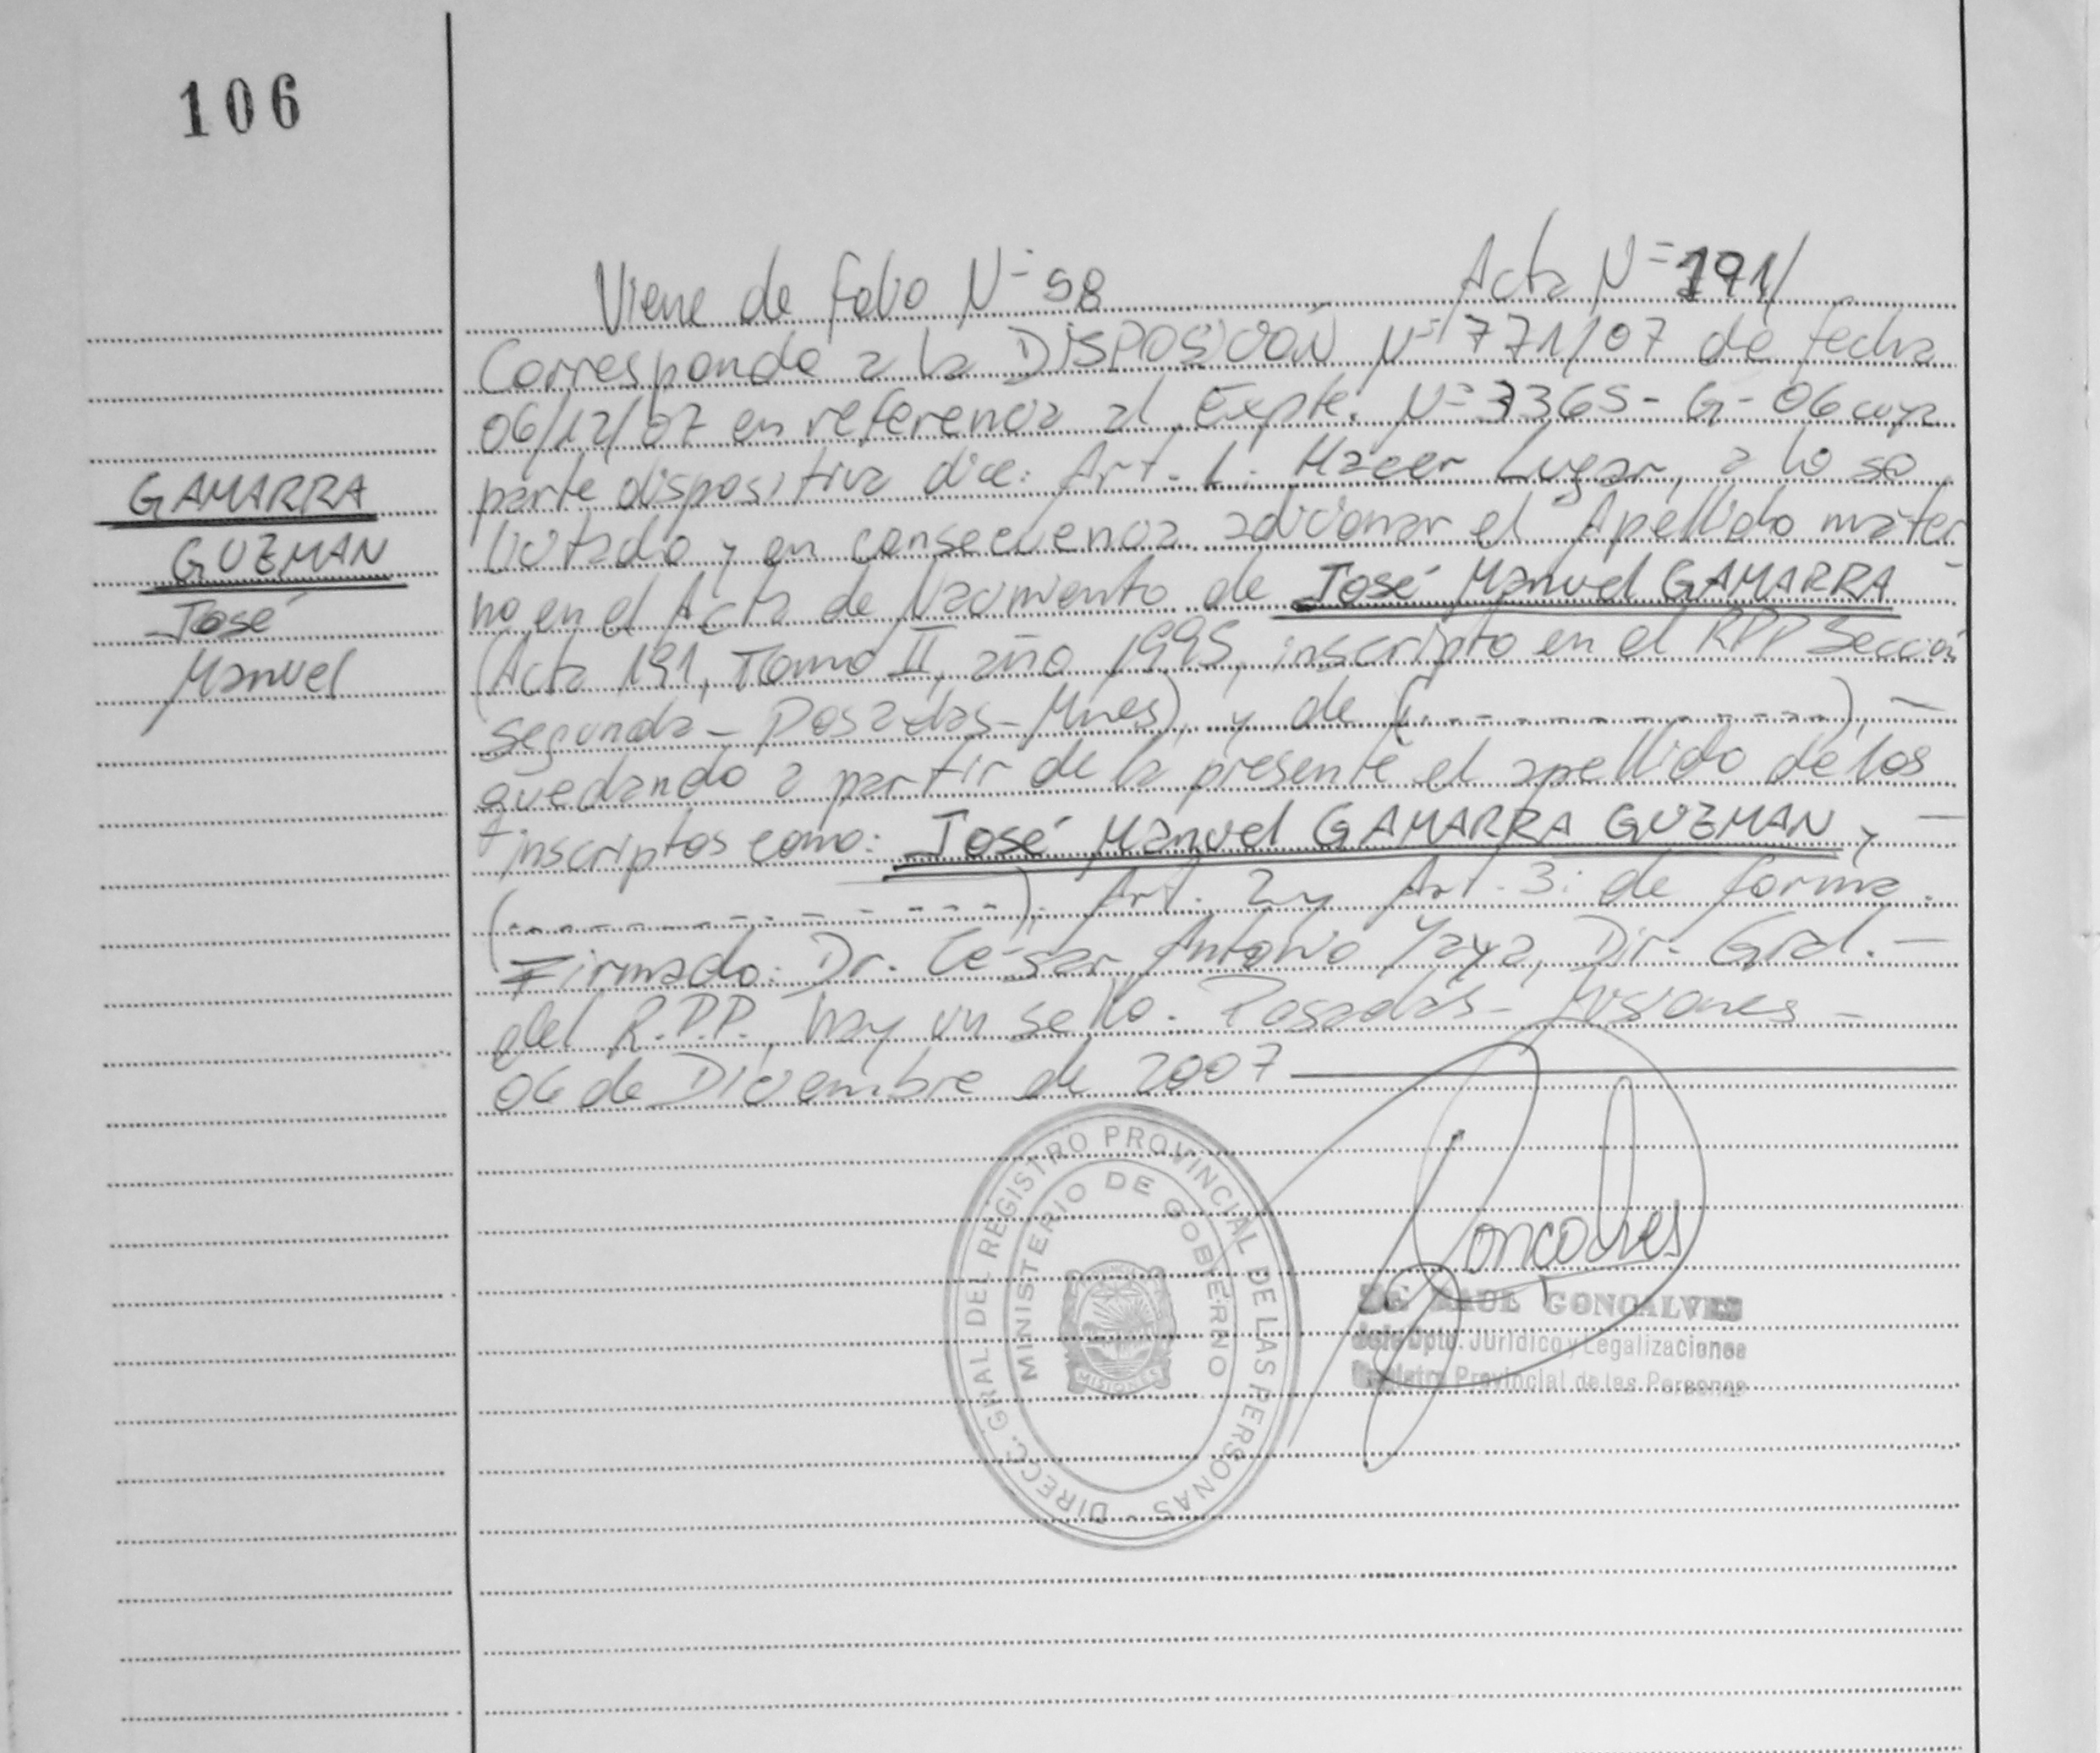 106
Viene de folio N= 98 Acta N= 191/
Corresponde a la DISPOSICION N= 771/07 de fecha
06/12/07 en referencia al Expte. N= 3365-G-06 cuya
parte dispositiva dice: Art-1: Hacer Lugar, a lo so
licitado y en consecuencia adicionar el Apellido mater
no en el Acta de Nacimiento de José Manuel GAMARRA -
(Acta 191, Tomo II, año 1995, inscripto en el RPP Sección
segunda - Posadas - Mnes), y de (- - - - - - - - - - - -), -
quedando a partir de la presente el apellido de los
inscriptos como: José Manuel GAMARRA GUZMAN, y -
(- - - - - - - - - - -). Art. 2 y Art. 3: de forma.
Firmado: Dr. César Antonio Yaya, Dir. Gral. -
del R.P.P., hay un sello. Posadas - Misiones -
06 de Diciembre de 2007
GAMARRA
GUZMAN
José
Manuel
DIRECC. GRAL DEL REGISTRO PROVINCIAL DE LAS PERSONAS -
MINISTERIO DE GOBIERNO
MISIONES
Goncalves
RAUL GONCALVES
Jefe Dpto. Jurídico y Legalizaciones
Registro Provincial de las Personas